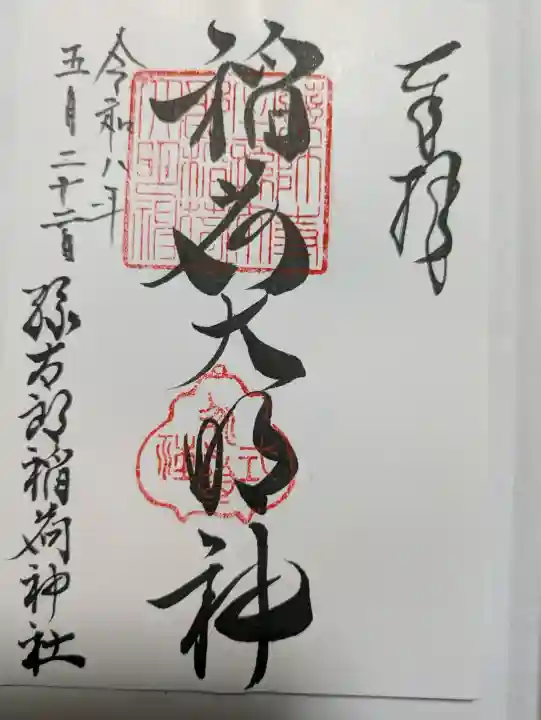 奉拝
稲荷大明神
令和八年
五月二十二日
孫太郎稲荷神社